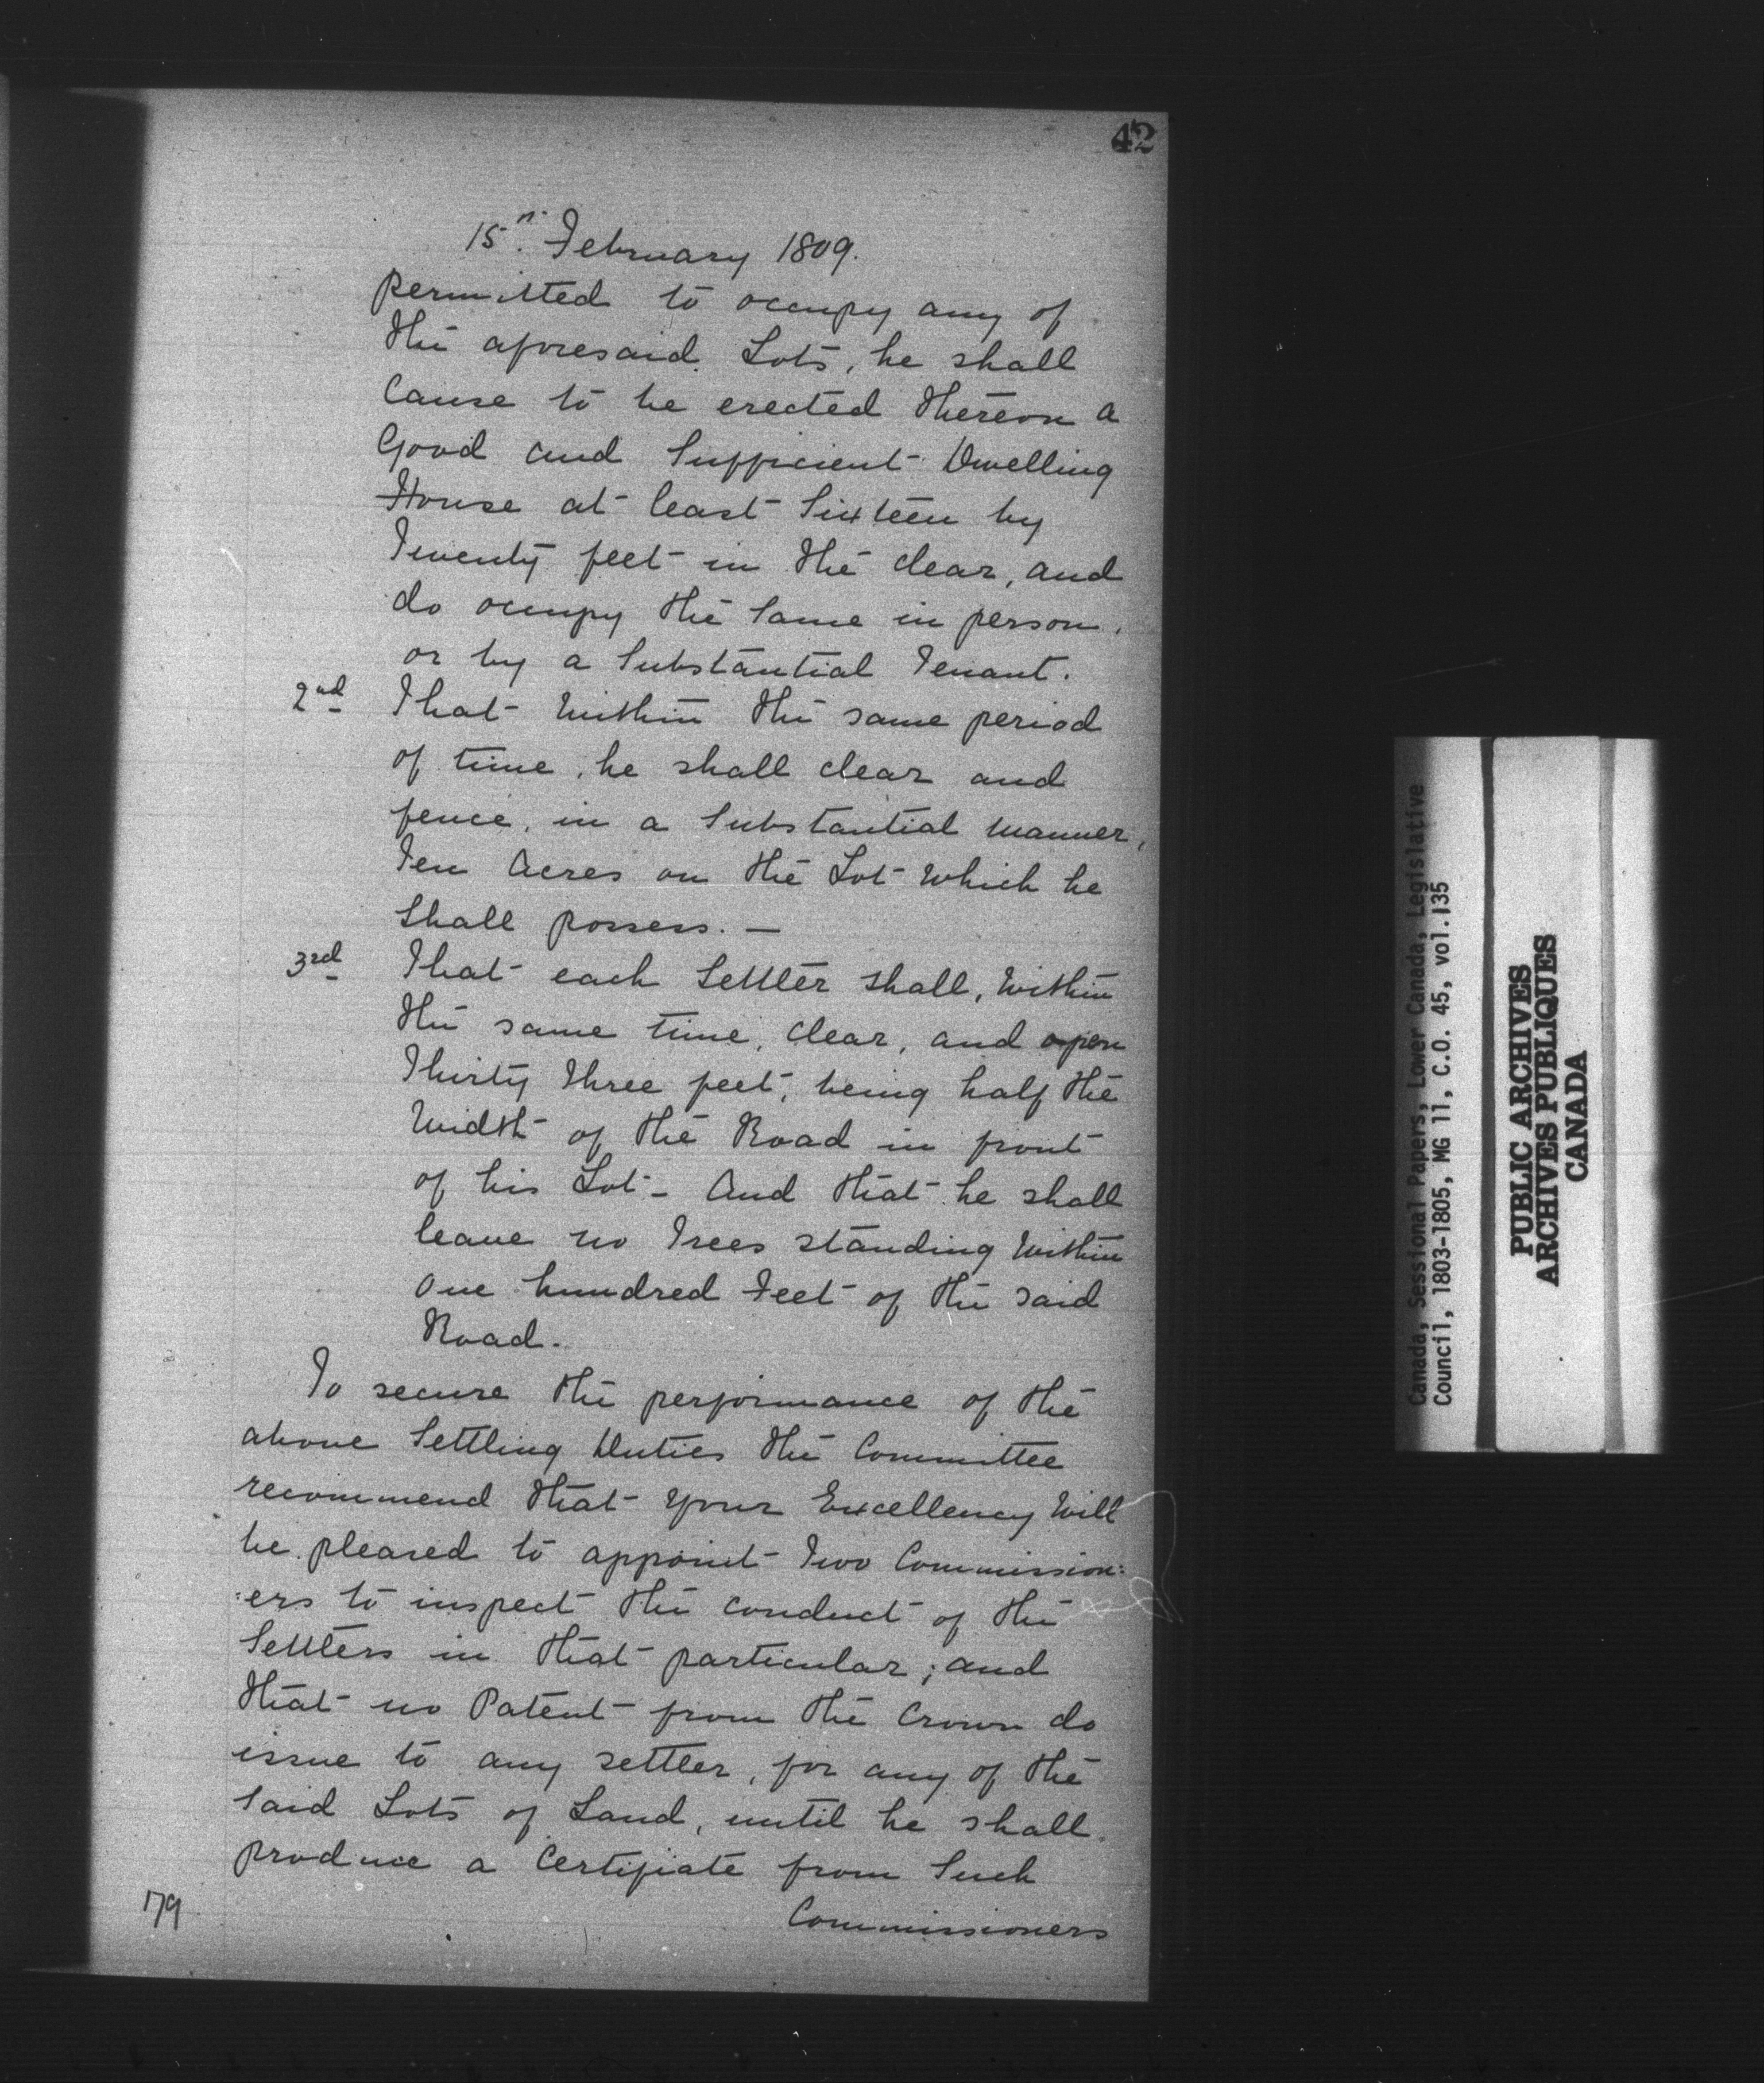 42
15th. February 1809.
permitted to occupy any of
the aforesaid Lots, he shall
Cause to be erected thereon a
Good and Sufficient Dwelling
House at least Sixteen by
Twenty feet in the clear, and
do occupy the same in person,
or by a Substantial Tenant.
2nd That within the same period
of time, he shall clear and
fence, in a Substantial manner,
Ten Acres on the Lot which he
Shall possess. —
3rd That each Settler shall, within
the same time, clear, and open
Thirty three feet, being half the
Width of the Road in front
of his Lot - And that he shall
leave no Trees standing within
One hundred Feet of the said
Road.
To secure the performance of the
above Settling Duties the Committee
recommend that your Excellency will
be pleased to appoint Two Commission:
:ers to inspect the conduct of the
Settlers in that particular; and
that no Patent from the Crown do
issue to any settler, for any of the
said Lots of Land, until he shall
produce a Certifiate from Such
Commissioners
179
Canada, Sessional Papers, Lower Canada, Legislative
Council, 1803-1805, MG 11, C.O. 45, vol.135
PUBLIC ARCHIVES
ARCHIVES PUBLIQUES
CANADA